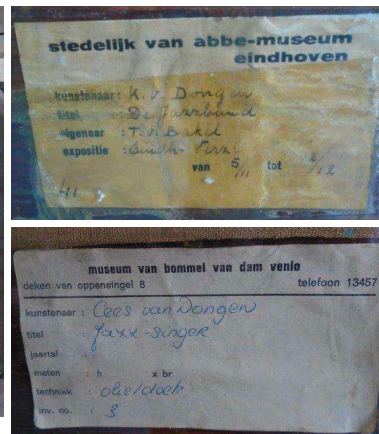 stedelijk van abbe-museum
eindhoven
kunstenaar: K. v. Dongen
titel : De Jazzband
eigenaar : T. v. Bakel
expositie : Eindh. Verz:
van 5/11 tot /12
41
museum van bommel van dam venlo
deken van oppensingel 8 telefoon 13457
kunstenaar : Cees van Dongen
titel : Jazz-singer
jaartal :
maten : h x br
techniek : olie/doek
inv. no. : 3